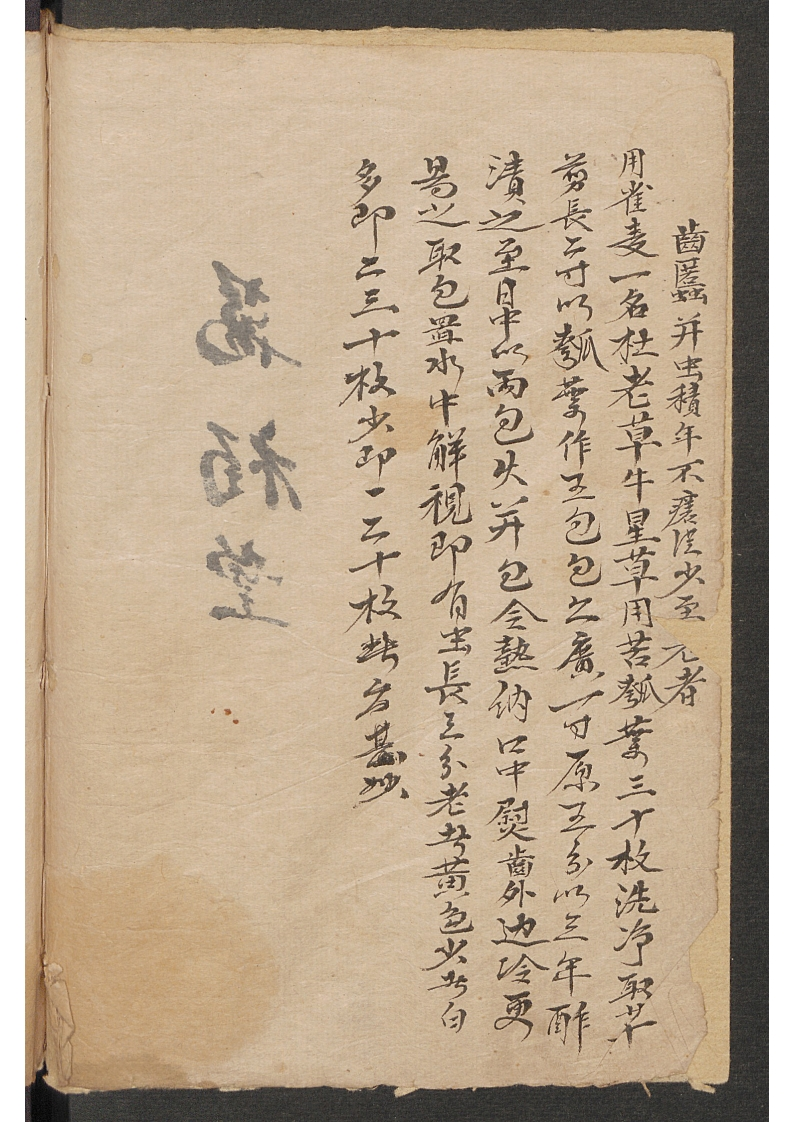 齒䘌并虫積年不瘥從少至 元者
用雀麦一名杜老草牛星草用苦瓠葉三十枚洗净取草
剪長二寸以瓠葉作五包包之廣一寸厚五分以三年酢
漬之至日中以兩包火并包令熱納口中熨齒外边冷更
易之取包置水中解視即有虫長三分老者黄色少者白
多即二三十枚少即一二十枚此方甚妙